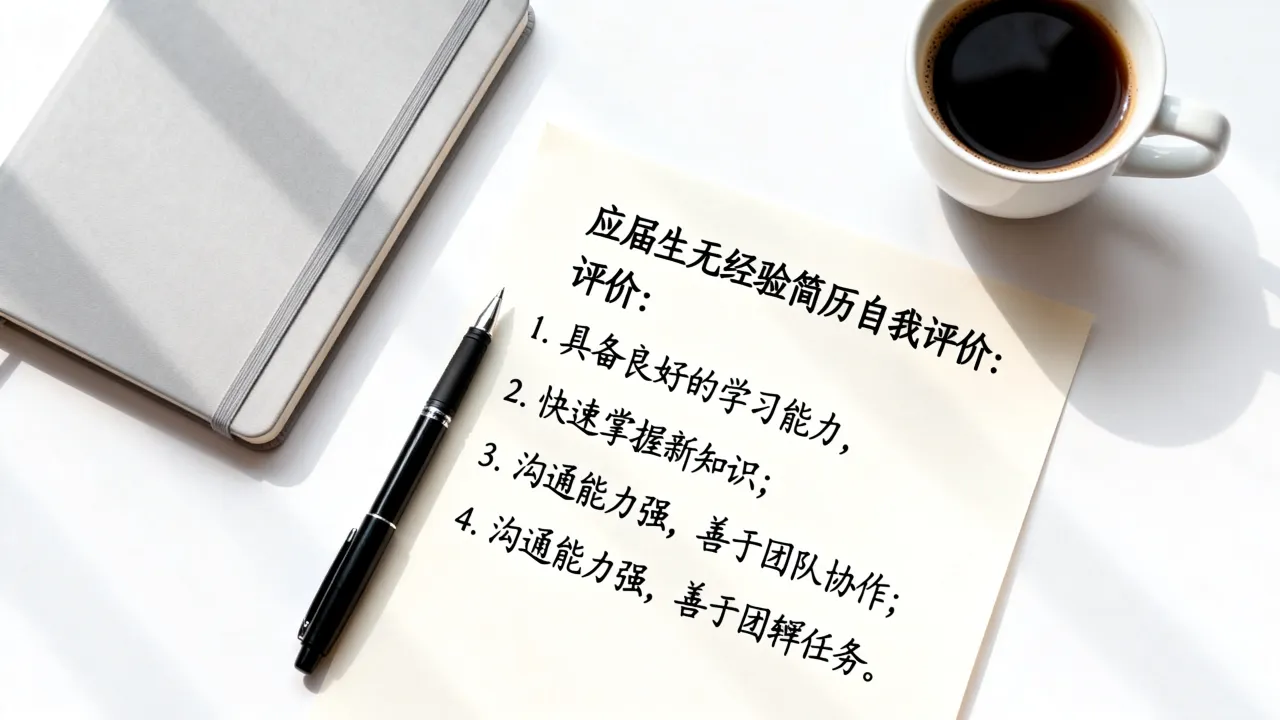 应届生无经验简历自我评价：
评价：
1. 具备良好的学习能力，
2. 快速掌握新知识；
3. 沟通能力强，善于团队协作；
4. 沟通能力强，善于团任务。